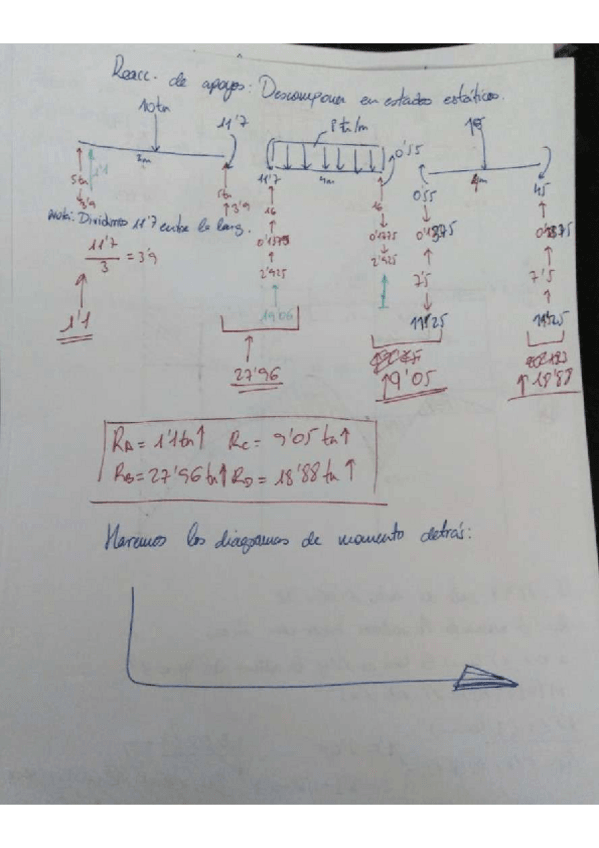 Reacc. de apoyos: Descomponer en estados estáticos.
10tn 11'7 8 tn/m 0'55
3m 11'7 4m 0'55 4m 45
5tn 5tn 16 16
3'9 1'1 3'9 0'1375 0'1375
Nota: Dividimos 11'7 entre la long.
11'7/3 = 3'9
2'925 2'925 7'5 7'5
19'06 11'25
1'1
27'96 9'05 18'88
RA = 1'1tn↑ RC = 9'05 tn↑
RB = 27'96 tn↑ RD = 18'88 tn↑
Haremos los diagramas de momento detrás: